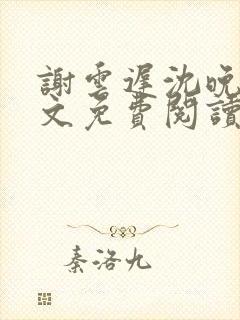 謝雲遲沈晚
文免費閱讀
秦洛九